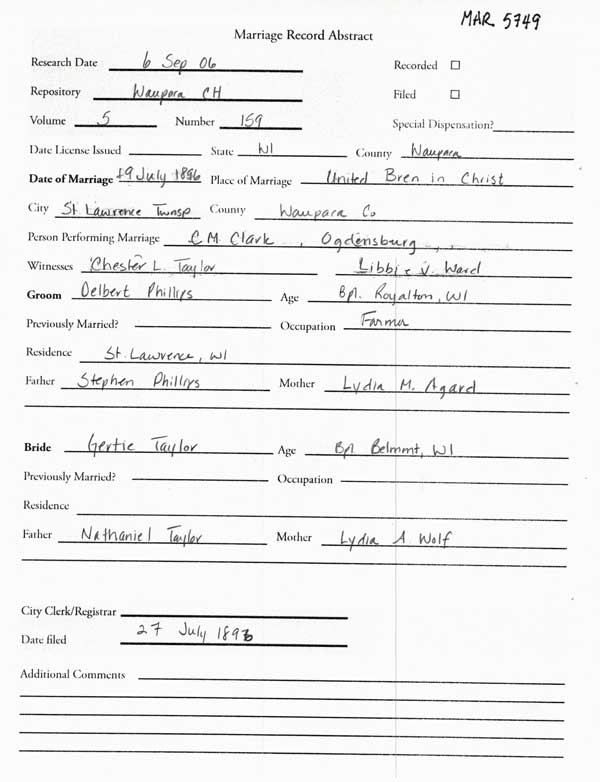 MAR 5749
Marriage Record Abstract
Research Date 6 Sep 06 Recorded ☐
Repository Waupaca CH Filed ☐
Volume 5 Number 159 Special Dispensation?
Date License Issued State WI County Waupaca
Date of Marriage 19 July 1896 Place of Marriage United Bren in Christ
City St Lawrence Twnsp County Waupaca Co
Person Performing Marriage C.M. Clark, Ogdensburg
Witnesses Chester L. Taylor Libbie V. Ward
Groom Delbert Phillips Age Bpl. Royalton, WI
Previously Married? Occupation Farmer
Residence St. Lawrence, WI
Father Stephen Phillips Mother Lydia M. Agard
Bride Gertie Taylor Age Bpl Belmmt, WI
Previously Married? Occupation
Residence
Father Nathaniel Taylor Mother Lydia A Wolf
City Clerk/Registrar
Date filed 27 July 1896
Additional Comments